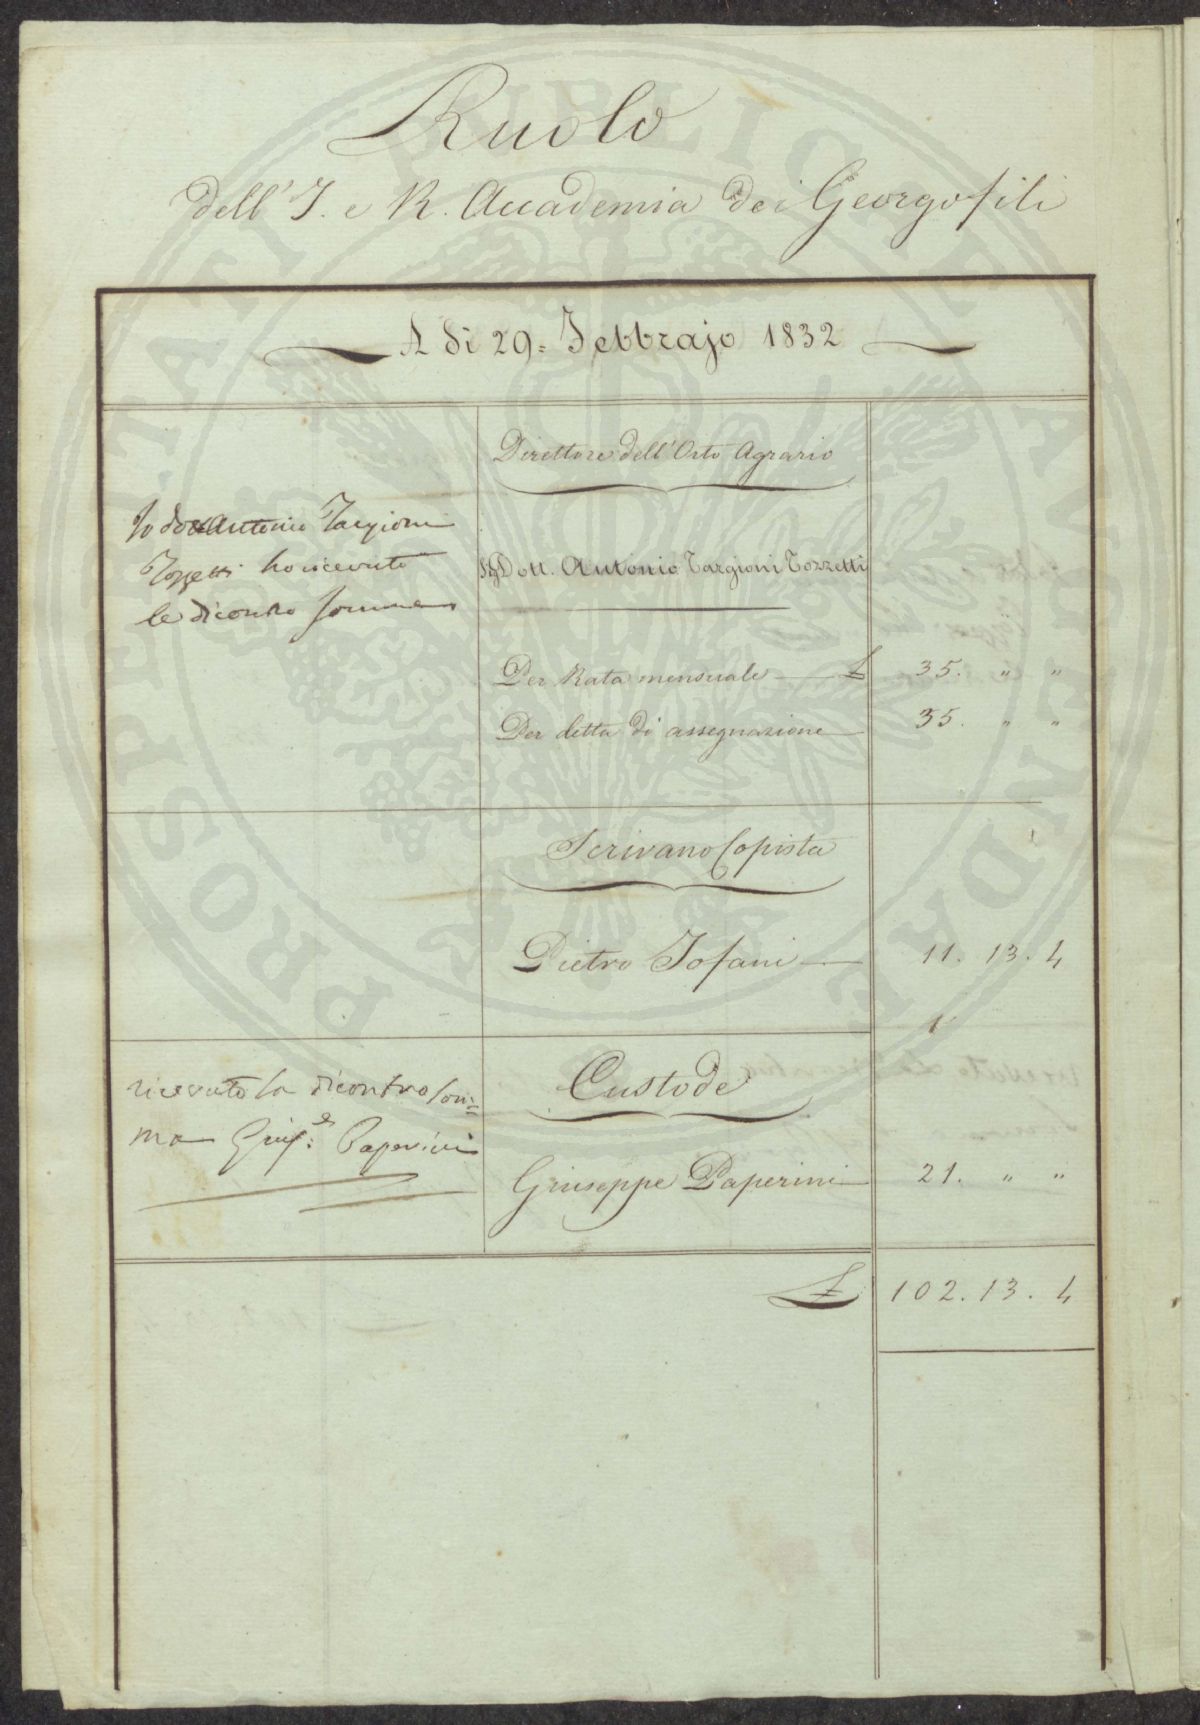 Ruolo
dell' I. e R. Accademia dei Georgofili
A di 29 = Febbrajo 1832
Direttore dell'Orto Agrario
Io Dott Antonio Targioni
Tozzetti ho ricevuto
le dicontro somme
Sig Dott. Antonio Targioni Tozzetti
Per Rata mensuale £ 35. " "
Per detta di assegnazione 35. " "
Scrivano Copista
Pietro Tofani 11. 13. 4
Custode
ricevuto la dicontro som=
ma Gius.e Paperini
Giuseppe Paperini 21. " "
£ 102. 13. 4
PROSPERITATI PUBLICAE AUGENDAE